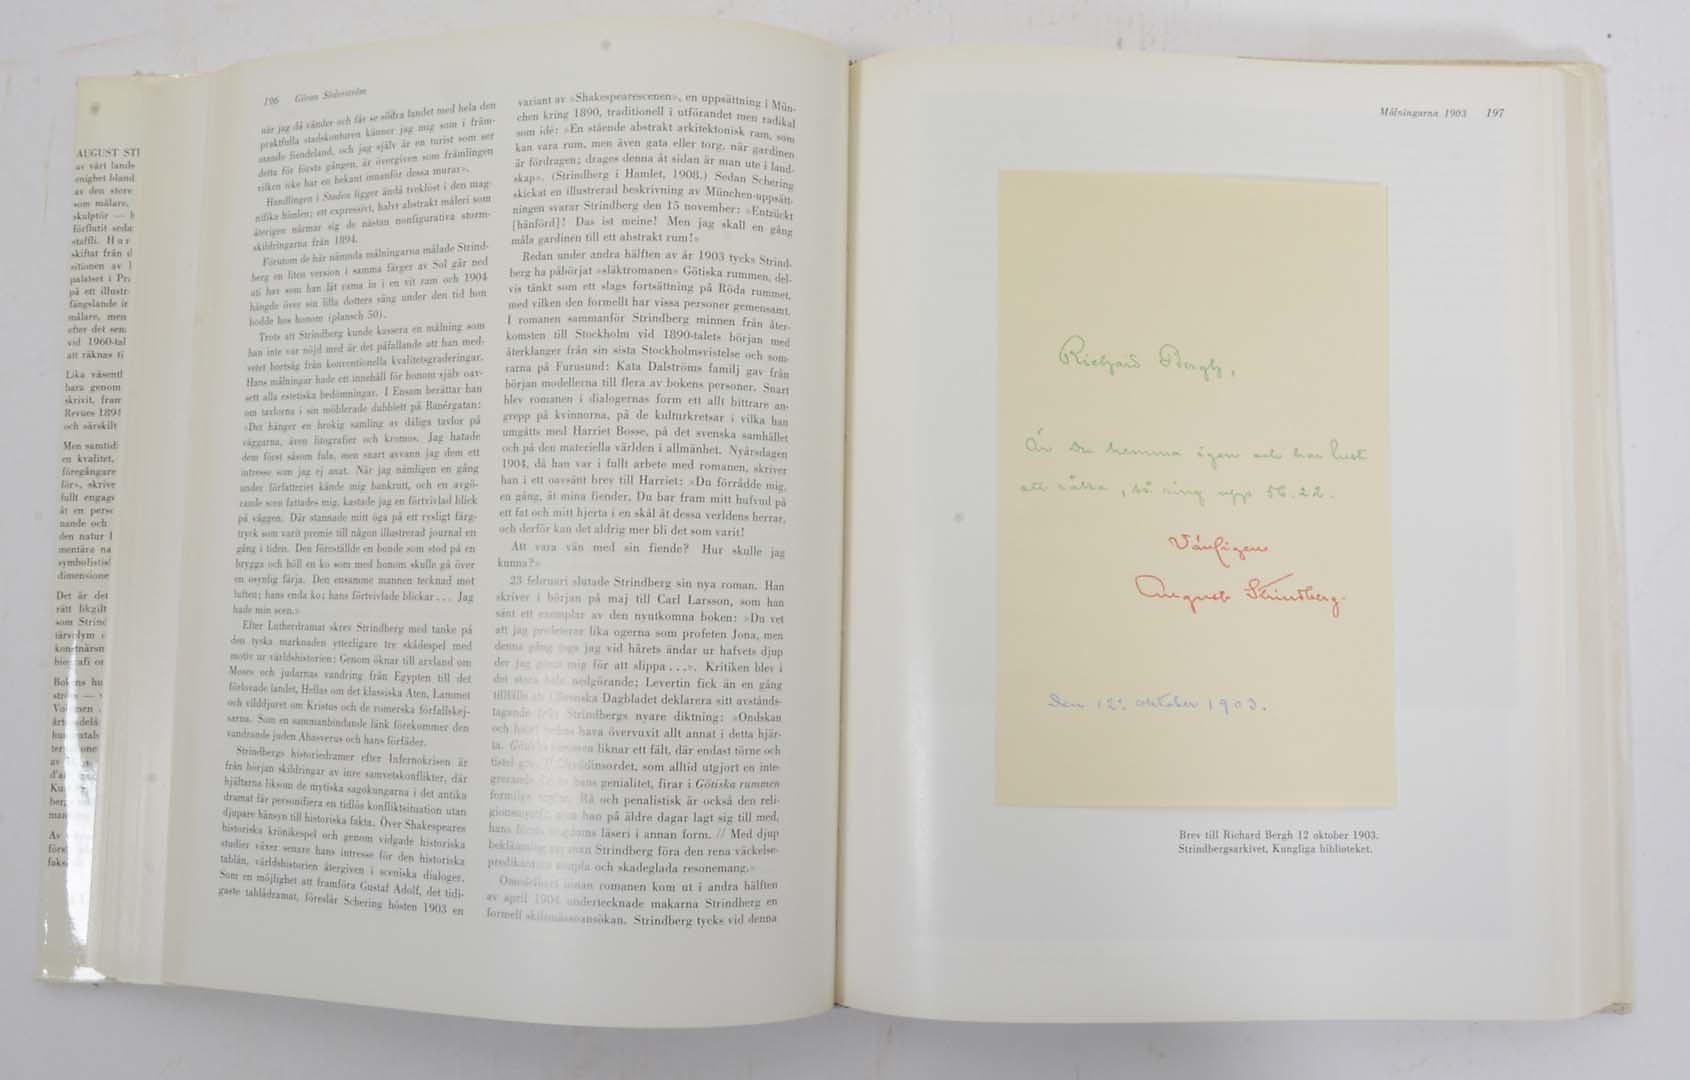 AUGUST STI
av vårt lands
enighet bland
av den store
som målare,
skulptör — h
förflutit seda
staffli. Hur
skiftar från d
sitionen av l
palatset i Pra
på ett illustr
fängslande in
målare, men
efter det sen
vid 1960-tal
att räknas ti
Lika väsentl
bara genom
skrivit, fram
Revues 1894
och särskilt
Men samtidi
en kvalitet,
föregångare
för», skrive
fullt engage
åt en perso
nande och
den natur l
mentära na
symbolistisk
dimensione
Det är det
rätt likgilt
som Strind
196 Göran Söderström
när jag då vänder och får se södra landet med hela den
praktfulla stadskonturen känner jag mig som i främ-
mande fiendeland, och jag själv är en turist som ser
detta för första gången, är övergiven som främlingen
vilken icke har en bekant innanför dessa murar».
Handlingen i Staden ligger ändå tveklöst i den mag-
nifika himlen; ett expressivt, halvt abstrakt måleri som
återigen närmar sig de nästan nonfigurativa storm-
skildringarna från 1894.
Förutom de här nämnda målningarna målade Strind-
berg en liten version i samma färger av Sol går ned
i hav som han låt rama in i en vit ram och 1904
hängde över sin lilla dotters säng under den tid hon
bodde hos honom (plansch 50).
Trots att Strindberg kunde kassera en målning som
han inte var nöjd med är det påfallande att han med-
vetet bortsåg från konventionella kvalitetsgraderingar.
Hans målningar hade ett innehåll för honom själv oav-
sett alla estetiska bedömningar. I Ensam berättar han
om tavlorna i sin möblerade dubblett på Banérgatan:
»Det hänger en brokig samling av dåliga tavlor på
väggarna, även litografier och kromos. Jag hatade
dem först såsom fula, men snart avvann jag dem ett
intresse som jag ej anat. När jag nämligen en gång
under författeriet kände mig bankrutt, och en avgö-
rande scen fattades mig, kastade jag en förtvivlad blick
på väggen. Där stannade mitt öga på ett rysligt färg-
tryck som varit premie till någon illustrerad journal en
gång i tiden. Den föreställde en bonde som stod på en
brygga och höll en ko som med honom skulle gå över
en osynlig färja. Den ensamme mannen tecknad mot
luften; hans enda ko; hans förtvivlade blickar... Jag
hade min scen.»
Efter Lutherdramat skrev Strindberg med tanke på
den tyska marknaden ytterligare tre skådespel med
motiv ur världshistorien: Genom öknar till arvland om
Moses och judarnas vandring från Egypten till det
förlovade landet, Hellas om det klassiska Aten, Lammet
och vilddjuret om Kristus och de romerska förfallskej-
sarna. Som en sammanbindande länk förekommer den
vandrande juden Ahasverus och hans förfäder.
Strindbergs historiedramer efter Infernokrisen är
från början skildringar av inre samvetskonflikter, där
hjältarna liksom de mytiska sagokungarna i det antika
dramat får personifiera en tidlös konfliktsituation utan
djupare hänsyn till historiska fakta. Över Shakespeares
historiska krönikespel och genom vidgade historiska
studier växer senare hans intresse för den historiska
tablån, världshistorien återgiven i sceniska dialoger.
Som en möjlighet att framföra Gustaf Adolf, det tidi-
gaste tablådramat, föreslår Schering hösten 1903 en
variant av »Shakespearescenen», en uppsättning i Mün-
chen kring 1890, traditionell i utförandet men radikal
som idé: »En stående abstrakt arkitektonisk ram, som
kan vara rum, men även gata eller torg, när gardinen
är fördragen; drages denna åt sidan är man ute i land-
skap». (Strindberg i Hamlet, 1908.) Sedan Schering
skickat en illustrerad beskrivning av München-uppsätt-
ningen svarar Strindberg den 15 november: »Entzückt
[hänförd]! Das ist meine! Men jag skall en gång
måla gardinen till ett abstrakt rum!»
Redan under andra hälften av år 1903 tycks Strind-
berg ha påbörjat »släktromanen» Götiska rummen, del-
vis tänkt som ett slags fortsättning på Röda rummet,
med vilken den formellt har vissa personer gemensamt.
I romanen sammanför Strindberg minnen från åter-
komsten till Stockholm vid 1890-talets början med
återklanger från sin sista Stockholmsvistelse och som-
rarna på Furusund: Kata Dalströms familj gav från
början modellerna till flera av bokens personer. Snart
blev romanen i dialogernas form ett allt bittrare an-
grepp på kvinnorna, på de kulturkretsar i vilka han
umgåtts med Harriet Bosse, på det svenska samhället
och på den materiella världen i allmänhet. Nyårsdagen
1904, då han var i fullt arbete med romanen, skriver
han i ett oavsänt brev till Harriet: »Du förrådde mig,
en gång, åt mina fiender. Du bar fram mitt hufvud på
ett fat och mitt hjerta i en skål åt dessa verldens herrar,
och derför kan det aldrig mer bli det som varit!
Att vara vän med sin fiende? Hur skulle jag
kunna?»
23 februari slutade Strindberg sin nya roman. Han
skriver i början på maj till Carl Larsson, som han
sänt ett exemplar av den nyutkomna boken: »Du vet
att jag profeterar lika ogerna som profeten Jona, men
denna gång togs jag vid hårets ändar ur hafvets djup
der jag gömt mig för att slippa ...». Kritiken blev i
det stora hela nedgörande; Levertin fick än en gång
tillfälle att i Svenska Dagbladet deklarera sitt avstånds-
tagande från Strindbergs nyare diktning: »Ondskan
och hatet hava övervuxit allt annat i detta hjär-
ta. Götiska rummen liknar ett fält, där endast törne och
tistel gro. // Skvallinsordet, som alltid utgjort en inte-
grerande del av hans genialitet, firar i Götiska rummen
formliga orgier. Rå och penalistisk är också den reli-
han på äldre dagar lagt sig till med,
hans läseri i annan form. // Med djup
beklämning ser man Strindberg föra den rena väckelse-
predikantens och skadeglada resonemang.»
Omedelbart innan romanen kom ut i andra hälften
av april 1904 undertecknade makarna Strindberg en
formell skilsmässoansökan. Strindberg tycks vid denna
Målningarna 1903 197
Richard Bergh,
Är Du hemma igen och har lust
att råkas, så ring upp 56.22.
Vänligen
August Strindberg.
Den 12e oktober 1903.
Brev till Richard Bergh 12 oktober 1903.
Strindbergsarkivet, Kungliga biblioteket.